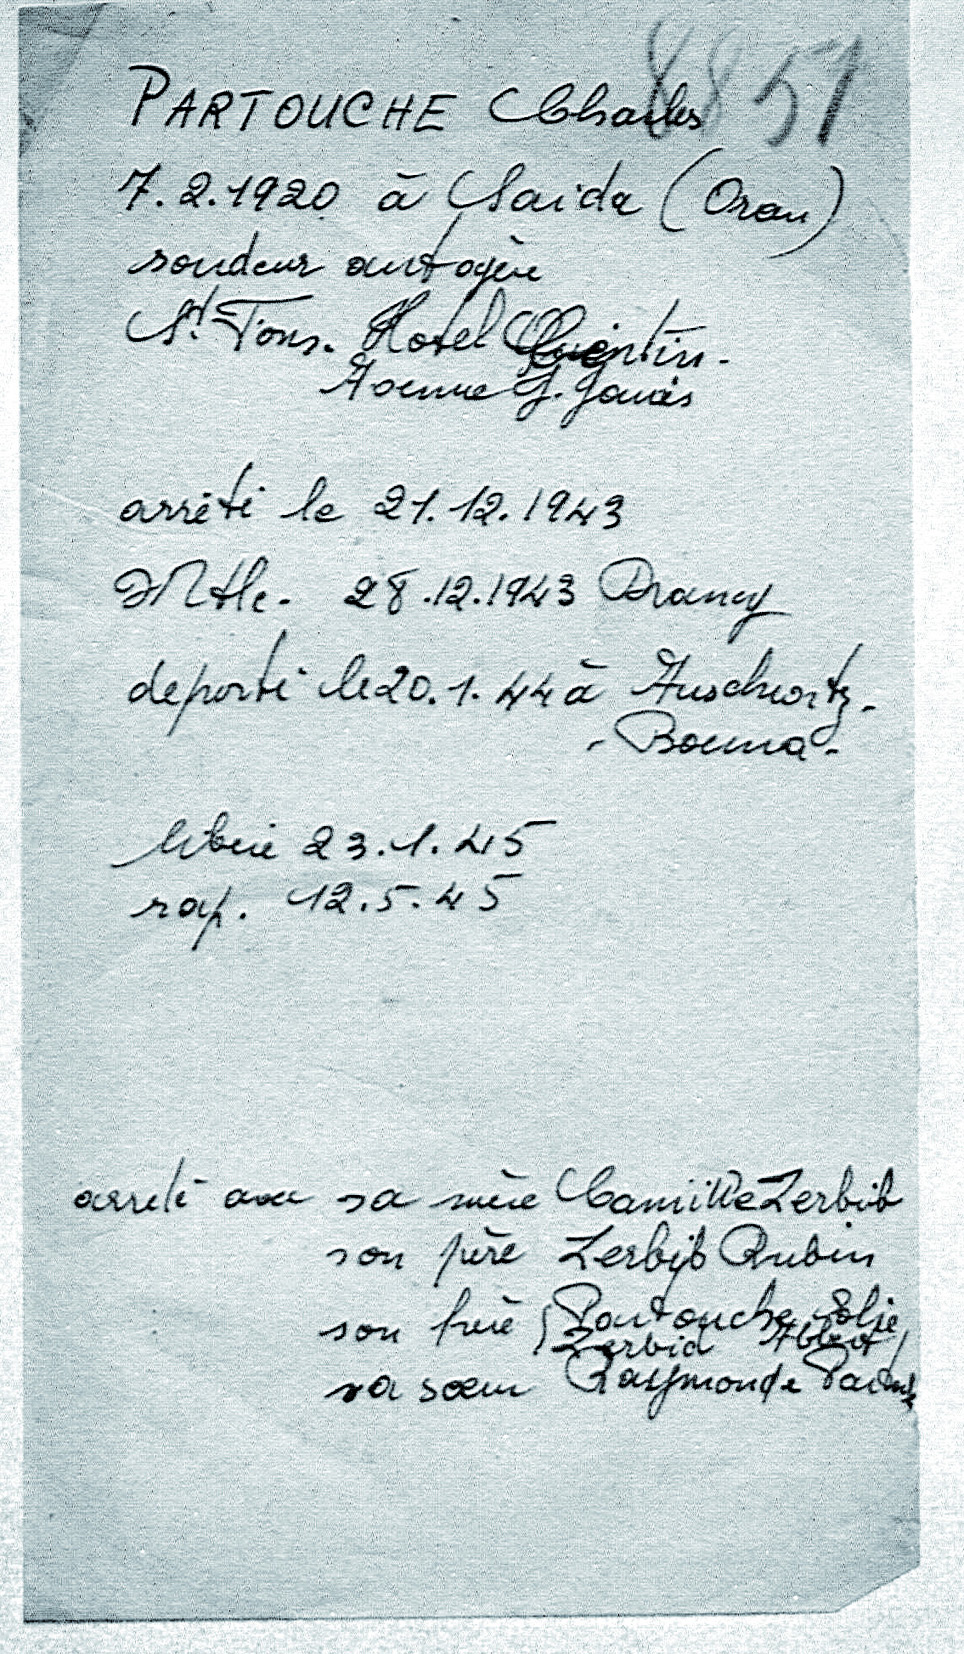 8851
PARTOUCHE Charles
7.2.1920 à Saida (Oran)
soudeur autogène
St. Fons. Hotel Quentin.
Avenue J. Jaurès
arrêté le 21.12.1943
Mtlc. 28.12.1943 Drancy
deporté le 20.1.44 à Auschwitz-
-Bouna-
libéré 23.1.45
rap. 12.5.45
arreté avec sa mère Camille Zerbib
son père Zerbib Rubin
son frère (Partouche Elie
Zerbid Albert)
sa sœur Raymonde